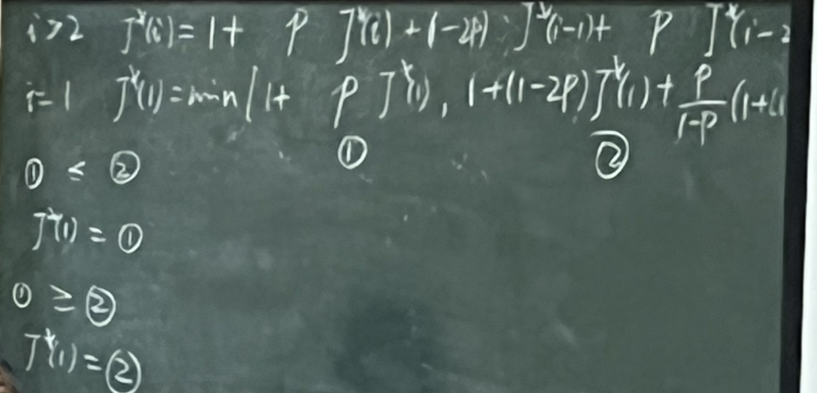 i>2 J*(i)=1+ P J*(i)+(1-2P)·J*(i-1)+ P J*(i-2
i=1 J*(1)=min[1+ P J*(1), 1+(1-2P)J*(1)+\frac{P}{1-P}(1+(1
① ②
① ≤ ②
J*(1) = ①
① ≥ ②
J*(1) = ②